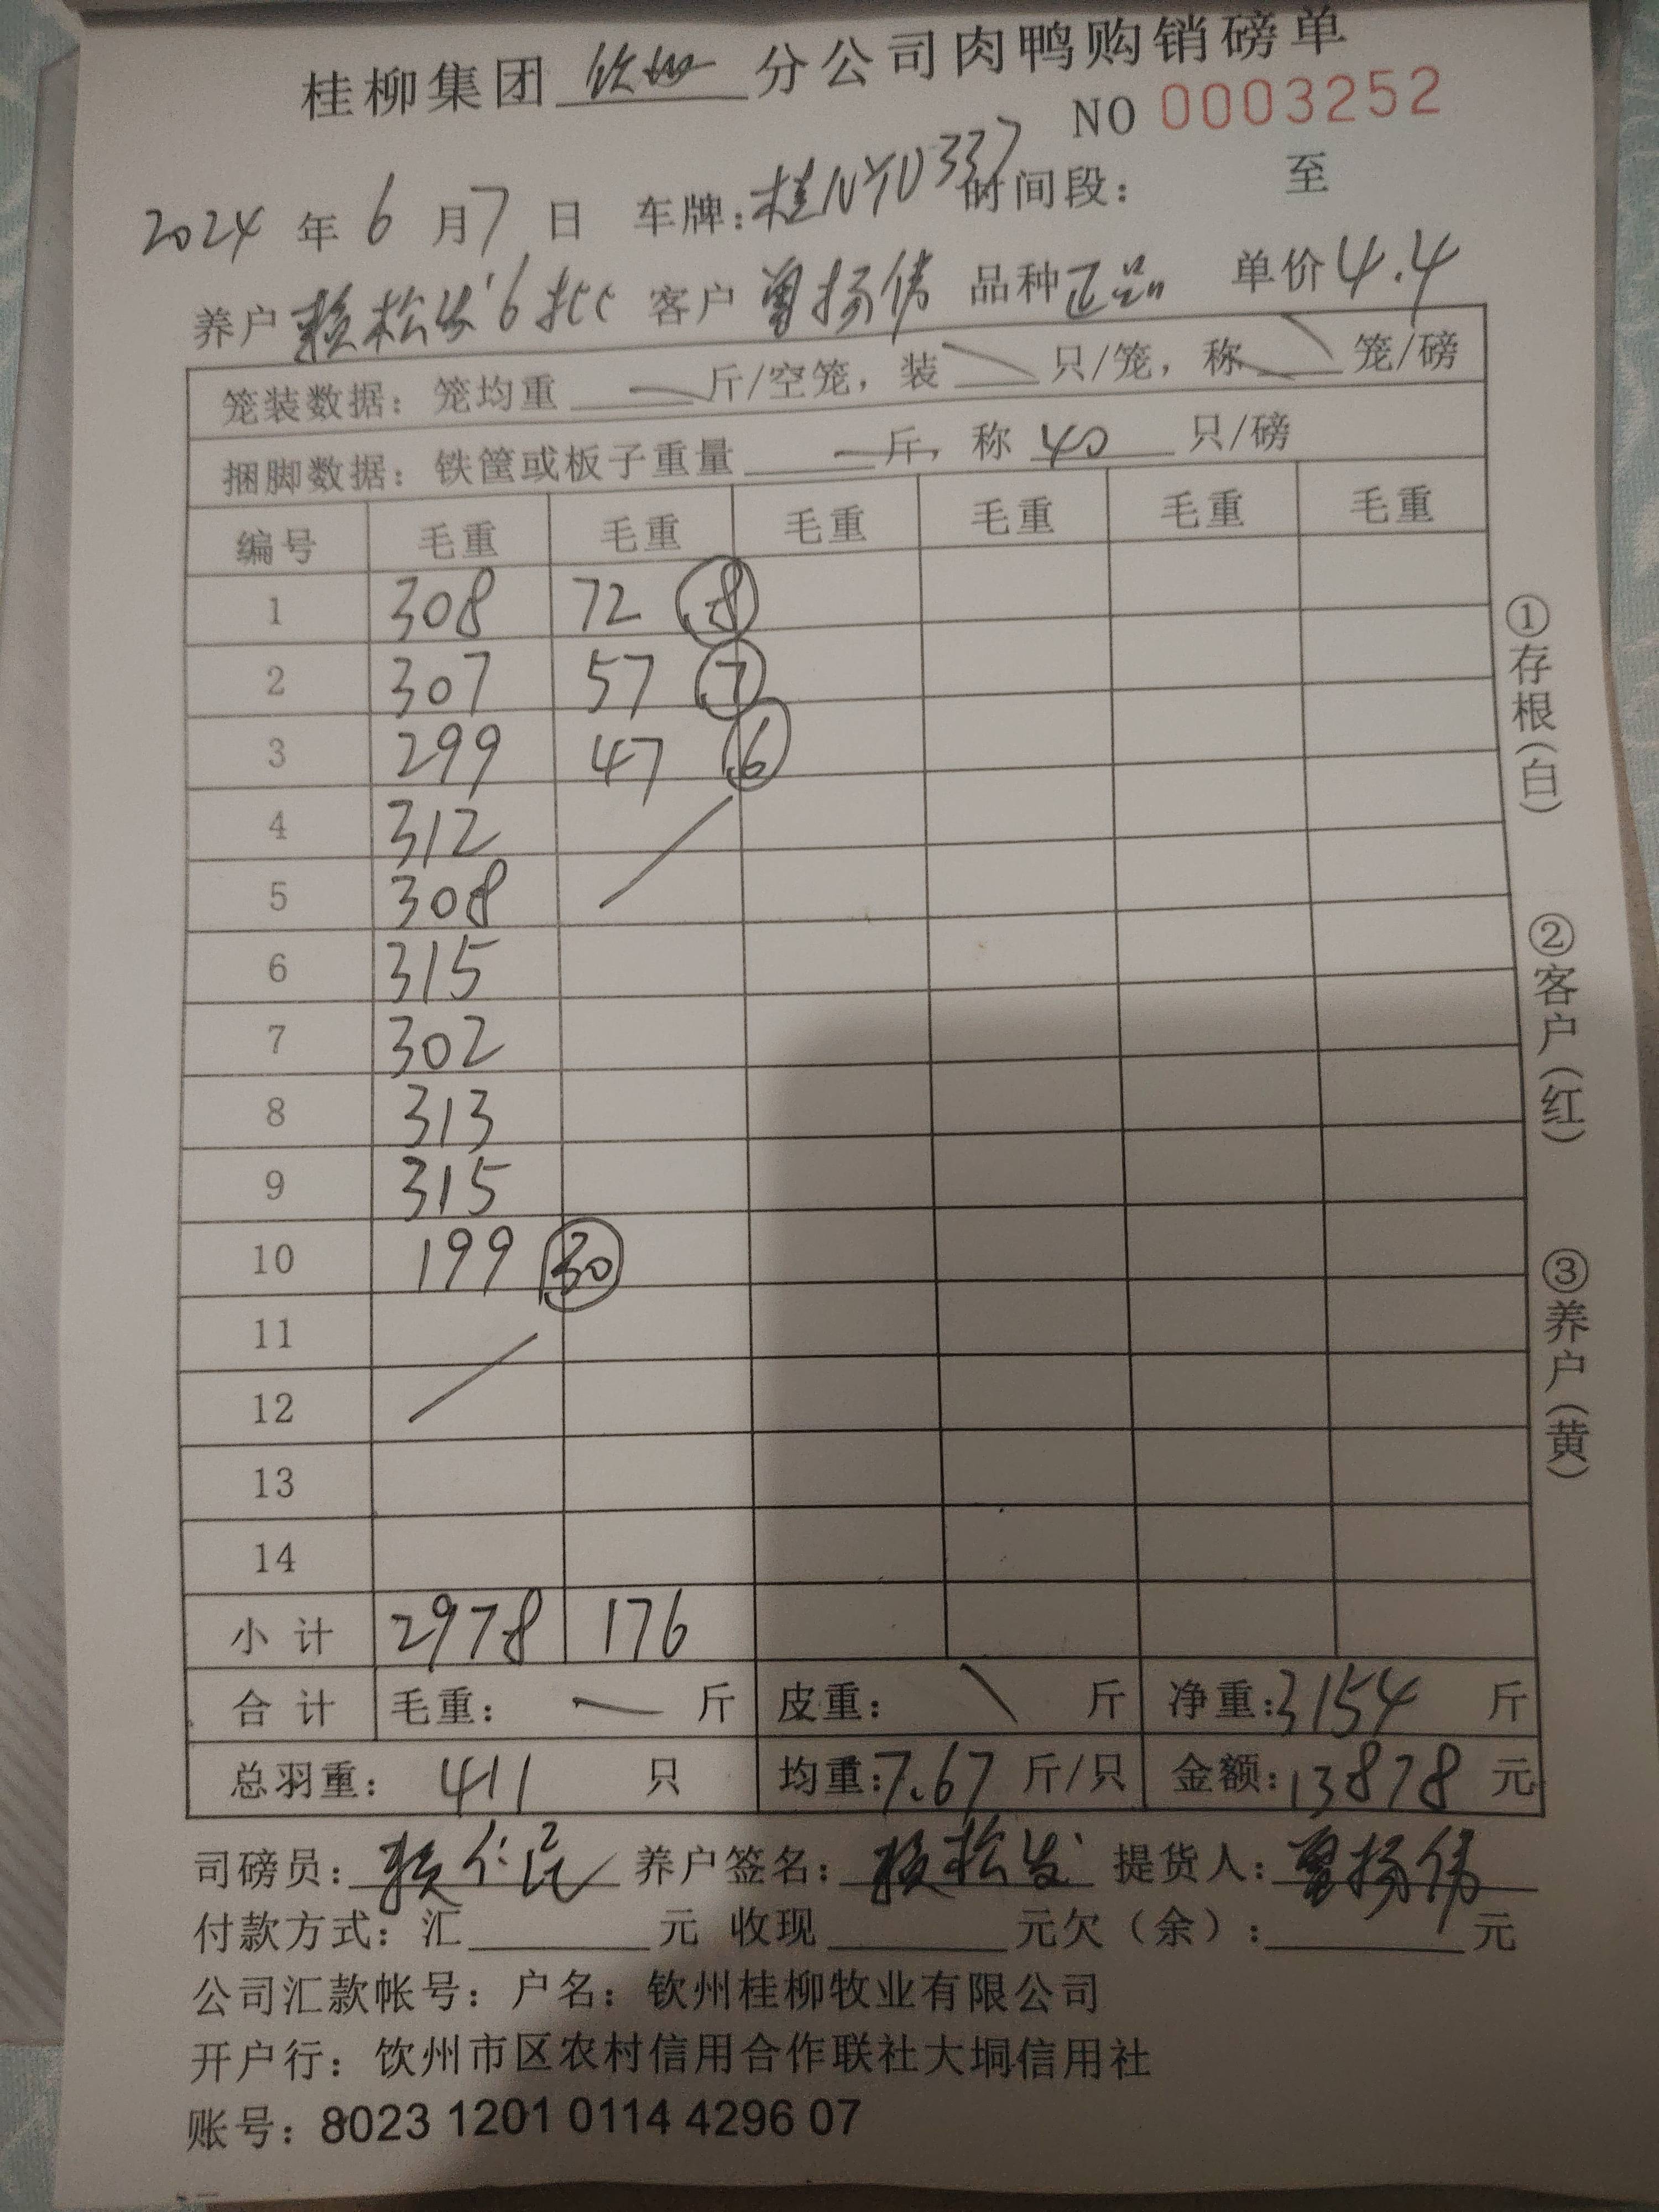 桂柳集团 钦州 分公司肉鸭购销磅单
NO 0003252
2024 年 6 月 7 日 车牌：桂NYD337 时间段： 至
养户 赖松发 16批 客户 曾扬伟 品种 正品 单价 4.4
笼装数据：笼均重 斤/空笼，装 只/笼，称 笼/磅
捆脚数据：铁筐或板子重量 斤，称 40 只/磅
编号 毛重 毛重 毛重 毛重 毛重 毛重
1 308 72 8
2 307 57 7
3 299 47 6
4 312
5 308
6 315
7 302
8 313
9 315
10 199 30
11
12
13
14
小计 2978 176
合计 毛重： 斤 皮重： 斤 净重：3154 斤
总羽重： 411 只 均重：7.67 斤/只 金额：13878 元
司磅员： 养户签名：赖松发 提货人：曾扬伟
付款方式：汇 元 收现 元欠（余）： 元
公司汇款帐号：户名：钦州桂柳牧业有限公司
开户行：钦州市区农村信用合作联社大垌信用社
账号：8023 1201 0114 4296 07
①存根（白）
②客户（红）
③养户（黄）